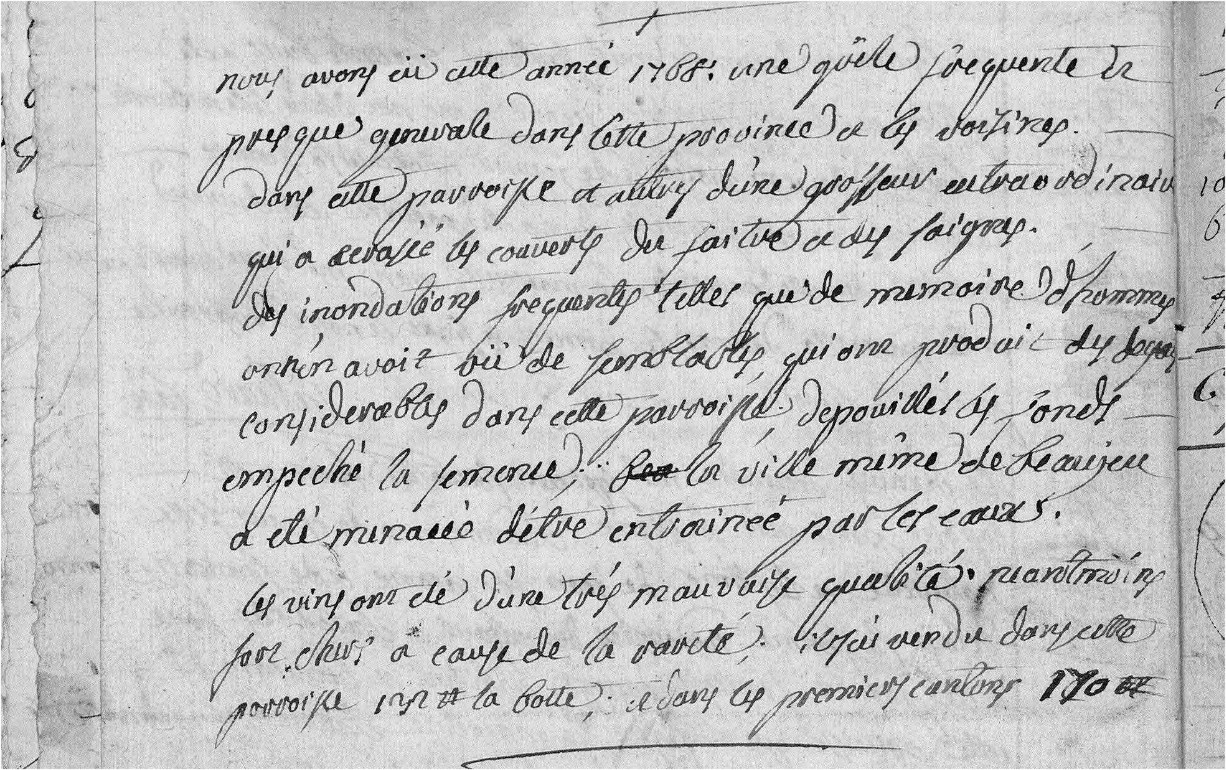 nous avons eü cette année 1768. une grêle frequente et
presque generale dans cette province et les voisines.
dans cette parroisse et autres d'une grosseur extraordinaire
qui a ecrasée les couverts du faitre et des saignes.
des inondations frequentes telles que de memoire d'hommes
on n'en avoit vü de semblables, qui ont produit des degats
considerables dans cette parroisse, depouillés les fonds
empeché la semence; la ville même de beaujeu
a eté menacée d'être entrainée par les eaux.
les vins ont eté d'une trés mauvaise qualité. neantmoins
fort chers a cause de la rareté; il s'ai vendu dans cette
parroisse la botte; et dans les premiers cantons 170 ₶